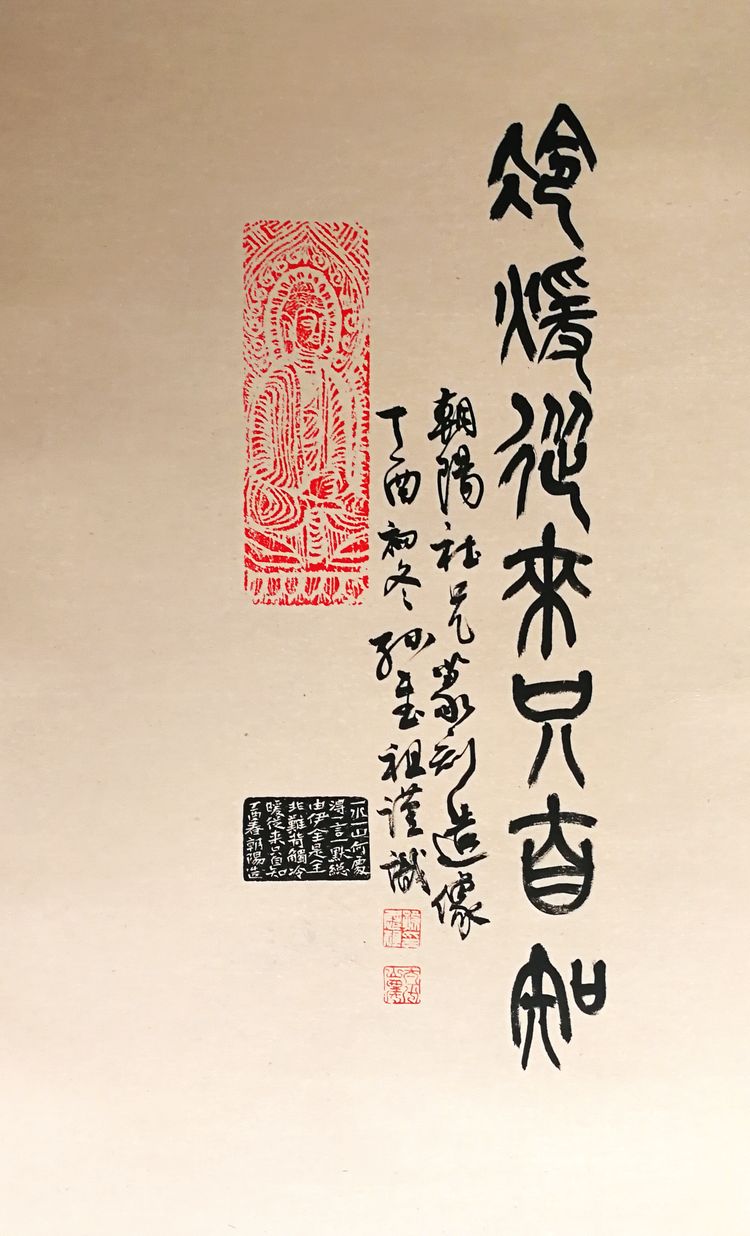 冷煖從來只自知
朝陽社兄篆刻造像
丁酉初冬孫慰祖謹識
一水一山何處
得一言一默總
由伊全是全
非難背觸冷
暖從來只自知
丁酉春朝陽造